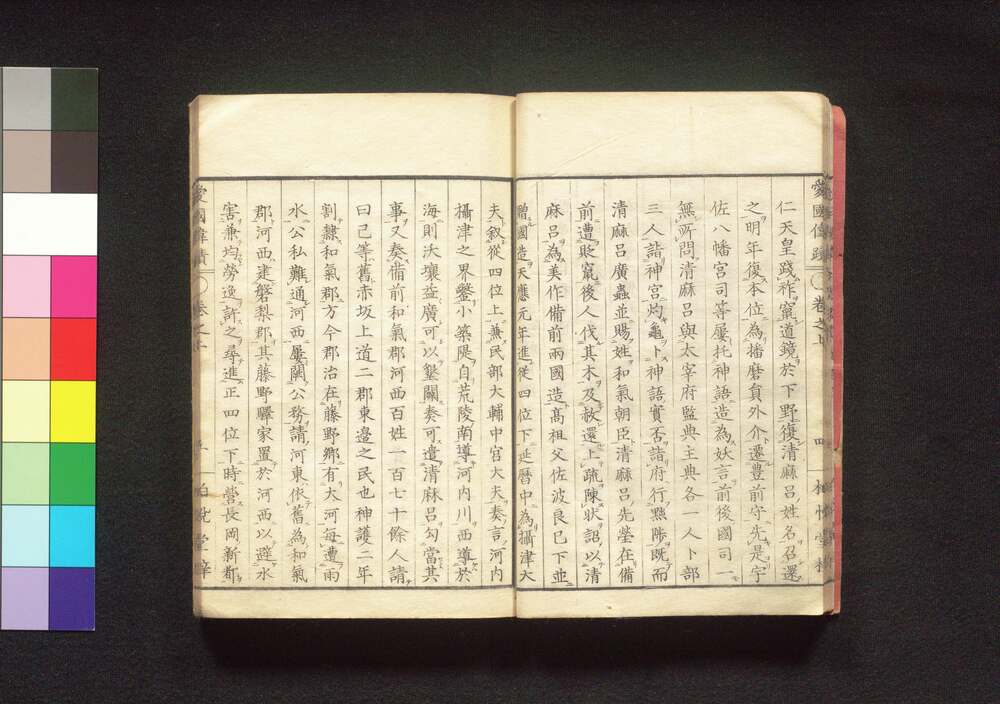 仁天皇踐祚竄道鏡於下野復清麻呂姓名召還
之明年復本位為播磨員外介遷豊前守先是宇
佐八幡宮司等屢托神語造為妖言前後國司一
無所問清麻呂與太宰府監典主典各一人卜部
三人詣神宮灼龜卜神語實否詣府行黜陟既而
清麻呂廣蟲並賜姓和氣朝臣清麻呂先塋在備
前遭貶竄後人伐其木及赦還上疏陳狀詔以清
麻呂為美作備前兩國造高祖父佐波良巳下並
贈國造天應元年進從四位下延曆中為攝津大
夫叙從四位上兼民部大輔中宮大夫奏言河内
攝津之界鑿小築隄自荒陵南導河内川西導於
海則沃壤益廣可以墾闢奏可遣清麻呂勾當其
事又奏備前和氣郡河西百姓一百七十餘人請
曰己等舊赤坂上道二郡東邊之民也神護二年
割隸和氣郡方今郡治在藤野鄉有大河每遭雨
水公私難通河西屢闕公務請河東依舊為和氣
郡河西建磐梨郡其藤野驛家置於河西以避水
害兼均勞逸許之尋進正四位下時營長岡新都
愛國偉蹟 卷之上